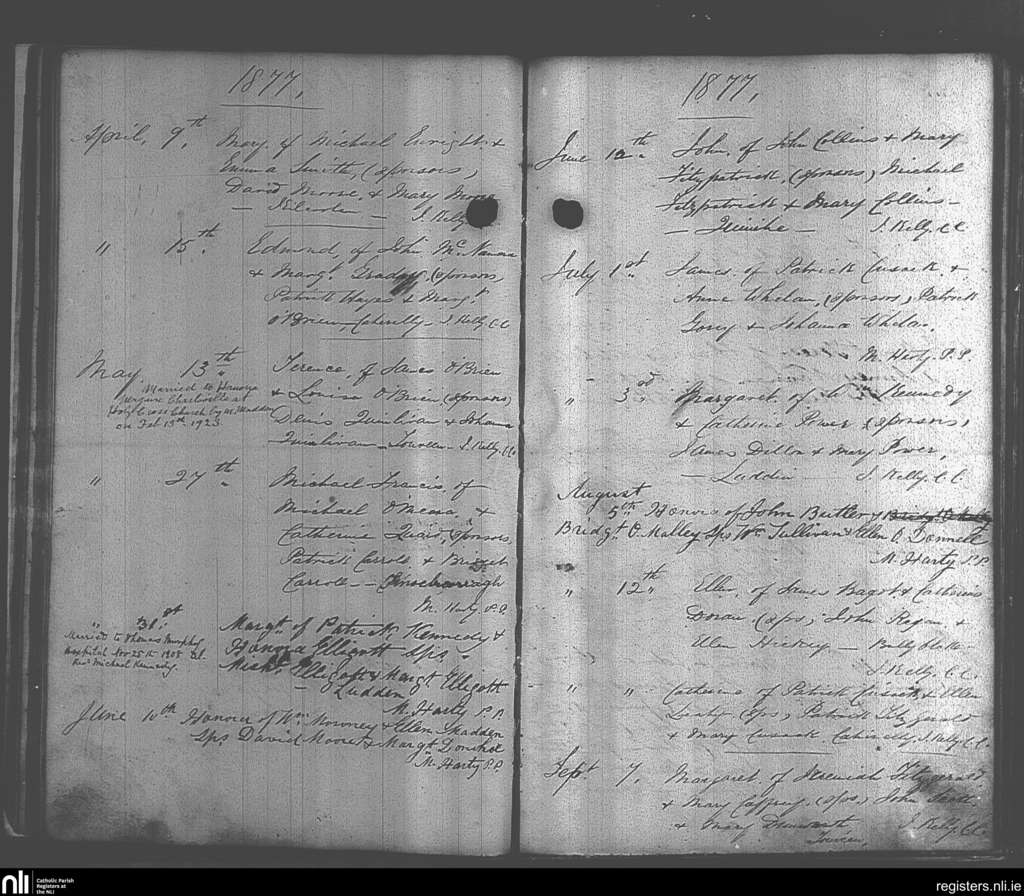 1877,
April, 9th Mary of Michael Enright &
Emma Smith, (sponsors,
David Moore, & Mary Moore
J. Kelly
" 15th. Edmond, of John McNamara
& Margt. (sponsors,
Patrick Hayes & Margt.
O'Brien — Caherelly — J. Kelly, C.C.
May 13th Terence, of James O'Brien
& Louisa O'Brien, (sponsors)
Denis Quinlivan & Johanna
Quinlivan — Towreen — J. Kelly, C.C.
Married to Hanora
Charleville at
Holy Cross Church by W. Madden
on Feb 13th 1923
" 27th. Michael Francis, of
Michael O'Meara, &
Catherine (sponsors,
Patrick Carroll & Bridget
Carroll —
M. Harty P.P.
" 31st Margt. of Patrick Kennedy &
Honora Elligott Sps.
Michl. Elligott & Margt Elligott
— Ludden
M. Harty P.P.
Married to Thomas Murphy
Hospital Nov 25th 1908
Revd Michael Kennedy.
June 10th Honour of Wm. & Ellen Madden
Sps David Moore & Margt Donohoe
M. Harty P.P.
1877,
June 12th. John, of John Collins & Mary
Fitzpatrick, (sponsors, Michael
Fitzpatrick & Mary Collins —
J. Kelly, C.C.
July 1st James, of Patrick Cusack &
Anne Whelan, (sponsors, Patrick
& Johanna Whelan.
M. Harty P.P.
" 3rd. Margaret, of Wm Kennedy
& Catherine Power (sponsors,
James Dillon & Mary Power,
— Luddin — J. Kelly, C.C.
August
5th Honora of John Butler &
Bridgt O'Malley Sps Wm Sullivan & Ellen O'Donnell
M. Harty P.P.
" 12th " Ellen, of James Bagot & Catherine
Doran (sps, John Regan &
Ellen Hickey —
J. Kelly, C.C.
" " Catherine of Patrick Cusack & Ellen
(sps, Patrick Fitzgerald
& Mary Cusack Caherelly, J. Kelly C.C.
Sept 7, Margaret, of Jeremiah Fitzgerald
& Mary Caffrey, (sps, John Scott
& Mary
J. Kelly, C.C.
Towreen,
nli
Catholic Parish
Registers at
the NLI
registers.nli.ie